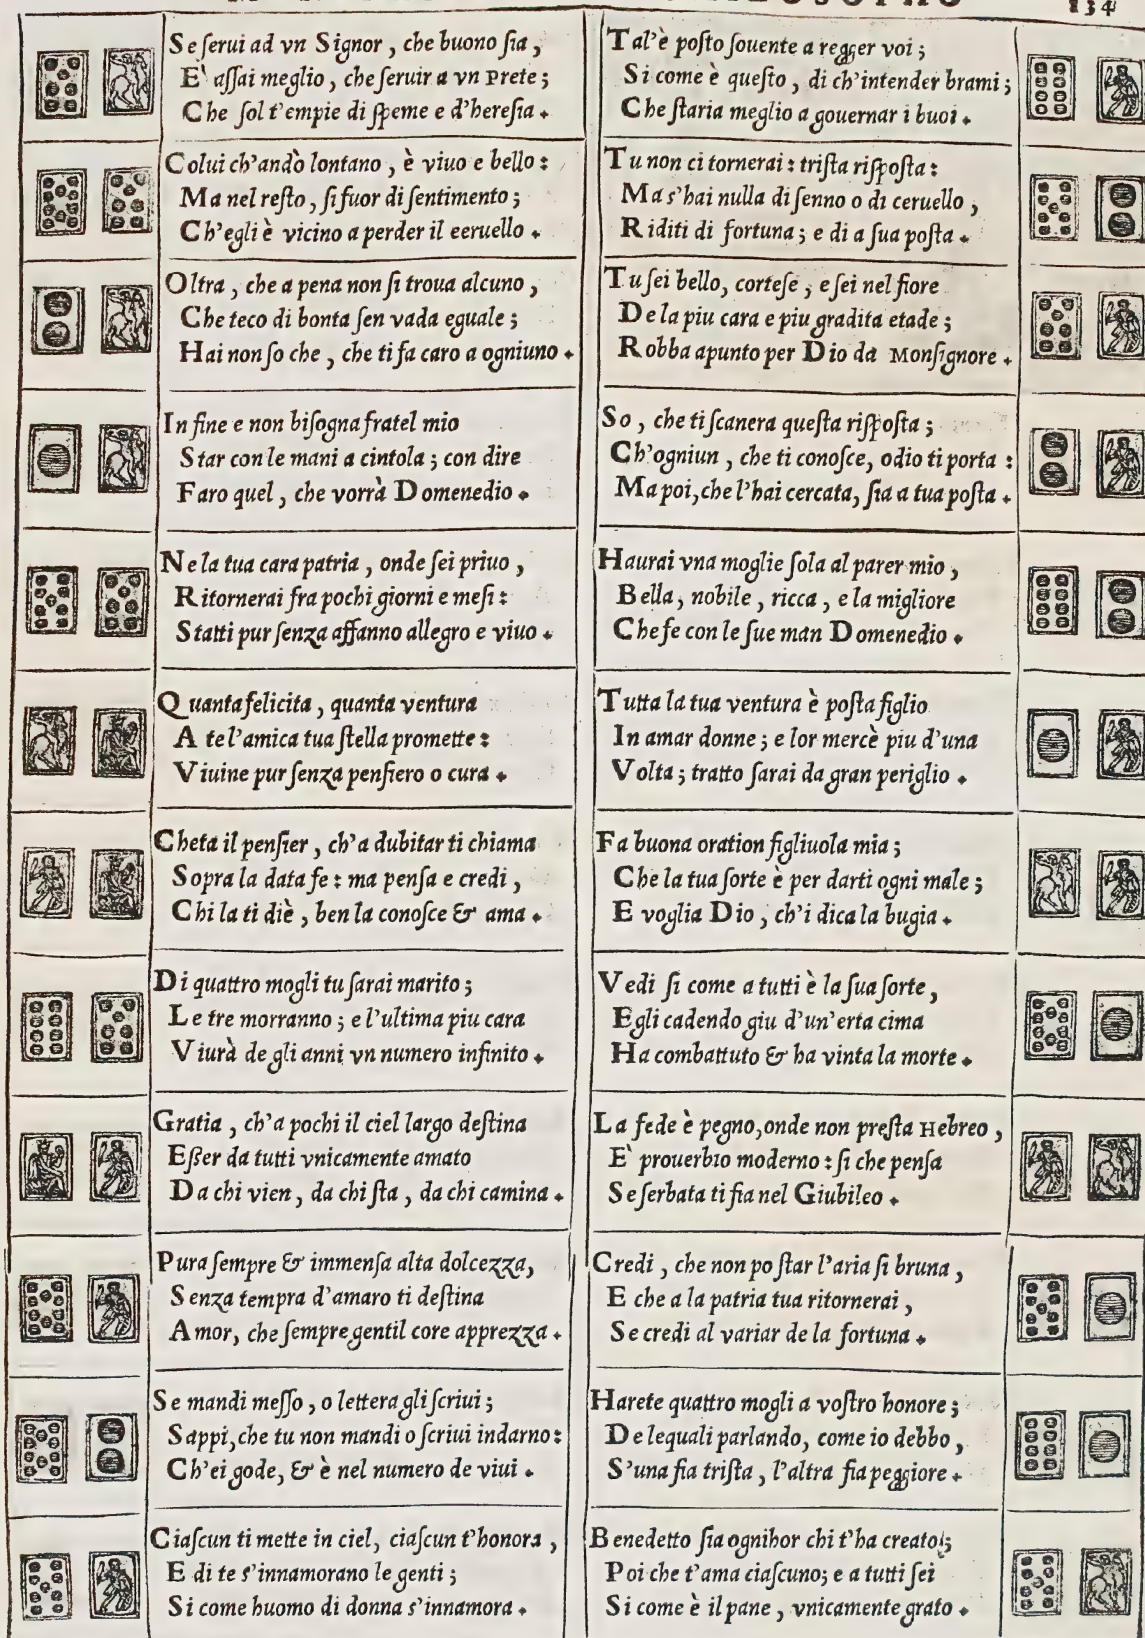 134
Se ſerui ad vn Signor, che buono ſia,
E' aſſai meglio, che ſeruir a vn Prete;
Che ſol t'empie di ſpeme e d'hereſia.
Colui ch'andò lontano, è viuo e bello:
Ma nel reſto, ſi fuor di ſentimento;
Ch'egli è vicino a perder il eeruello.
Oltra, che a pena non ſi troua alcuno,
Che teco di bonta ſen vada eguale;
Hai non ſo che, che ti fa caro a ogniuno.
In fine e non biſogna fratel mio
Star con le mani a cintola; con dire
Faro quel, che vorrà Domenedio.
Ne la tua cara patria, onde ſei priuo,
Ritornerai fra pochi giorni e meſi:
Statti pur ſenza affanno allegro e viuo.
Quanta felicita, quanta ventura
A te l'amica tua ſtella promette:
Viuine pur ſenza penſiero o cura.
Cheta il penſier, ch'a dubitar ti chiama
Sopra la data fe: ma penſa e credi,
Chi la ti diè, ben la conoſce & ama.
Di quattro mogli tu ſarai marito;
Le tre morranno; e l'ultima piu cara
Viurà de gli anni vn numero infinito.
Gratia, ch'a pochi il ciel largo deſtina
Eſſer da tutti vnicamente amato
Da chi vien, da chi ſta, da chi camina.
Pura ſempre & immenſa alta dolcezza,
Senza tempra d'amaro ti deſtina
Amor, che ſempre gentil core apprezza.
Se mandi meſſo, o lettera gli ſcriui;
Sappi, che tu non mandi o ſcriui indarno:
Ch'ei gode, & è nel numero de viui.
Ciaſcun ti mette in ciel, ciaſcun t'honora,
E di te s'innamorano le genti;
Si come huomo di donna s'innamora.
Tal'è poſto ſouente a regger voi;
Si come è queſto, di ch'intender brami;
Che ſtaria meglio a gouernar i buoi.
Tu non ci tornerai: triſta riſpoſta:
Ma s'hai nulla di ſenno o di ceruello,
Riditi di fortuna; e di a ſua poſta.
Tu ſei bello, corteſe, e ſei nel fiore
De la piu cara e piu gradita etade;
Robba apunto per Dio da Monſignore.
So, che ti ſcanera queſta riſpoſta;
Ch'ogniun, che ti conoſce, odio ti porta:
Ma poi, che l'hai cercata, ſia a tua poſta.
Haurai vna moglie ſola al parer mio,
Bella, nobile, ricca, e la migliore
Che fe con le ſue man Domenedio.
Tutta la tua ventura è poſta figlio
In amar donne; e lor mercè piu d'una
Volta; tratto ſarai da gran periglio.
Fa buona oration figliuola mia;
Che la tua ſorte è per darti ogni male;
E voglia Dio, ch'i dica la bugia.
Vedi ſi come a tutti è la ſua ſorte,
Egli cadendo giu d'un'erta cima
Ha combattuto & ha vinta la morte.
La fede è pegno, onde non preſta Hebreo,
E' prouerbio moderno: ſi che penſa
Se ſerbata ti fia nel Giubileo.
Credi, che non po ſtar l'aria ſi bruna,
E che a la patria tua ritornerai,
Se credi al variar de la fortuna.
Harete quattro mogli a voſtro honore;
De lequali parlando, come io debbo,
S'una fia triſta, l'altra fia peggiore.
Benedetto ſia ognihor chi t'ha creato;
Poi che t'ama ciaſcuno; e a tutti ſei
Si come è il pane, vnicamente grato.